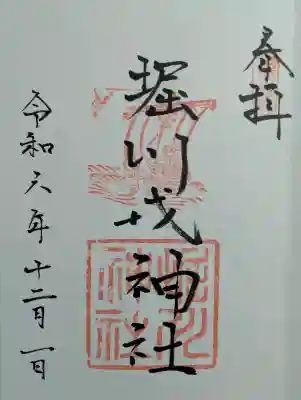 奉拝
堀川戎神社
令和六年十二月一日